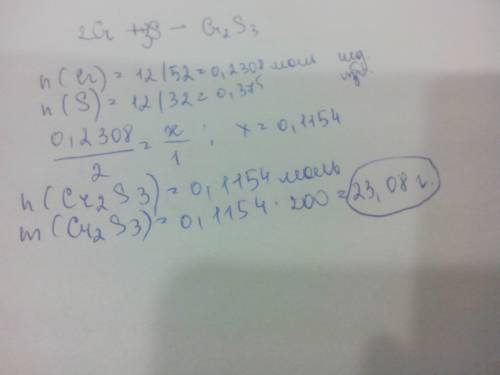 2Cr + 3S – Cr2S3
n(Cr) = 12/52 = 0,2308 моль нед.
n(S) = 12/32 = 0,375 изб.
0,2308/2 = x/1 ; x = 0,1154
n(Cr2S3) = 0,1154 моль
m(Cr2S3) = 0,1154 · 200 = 23,08 г.